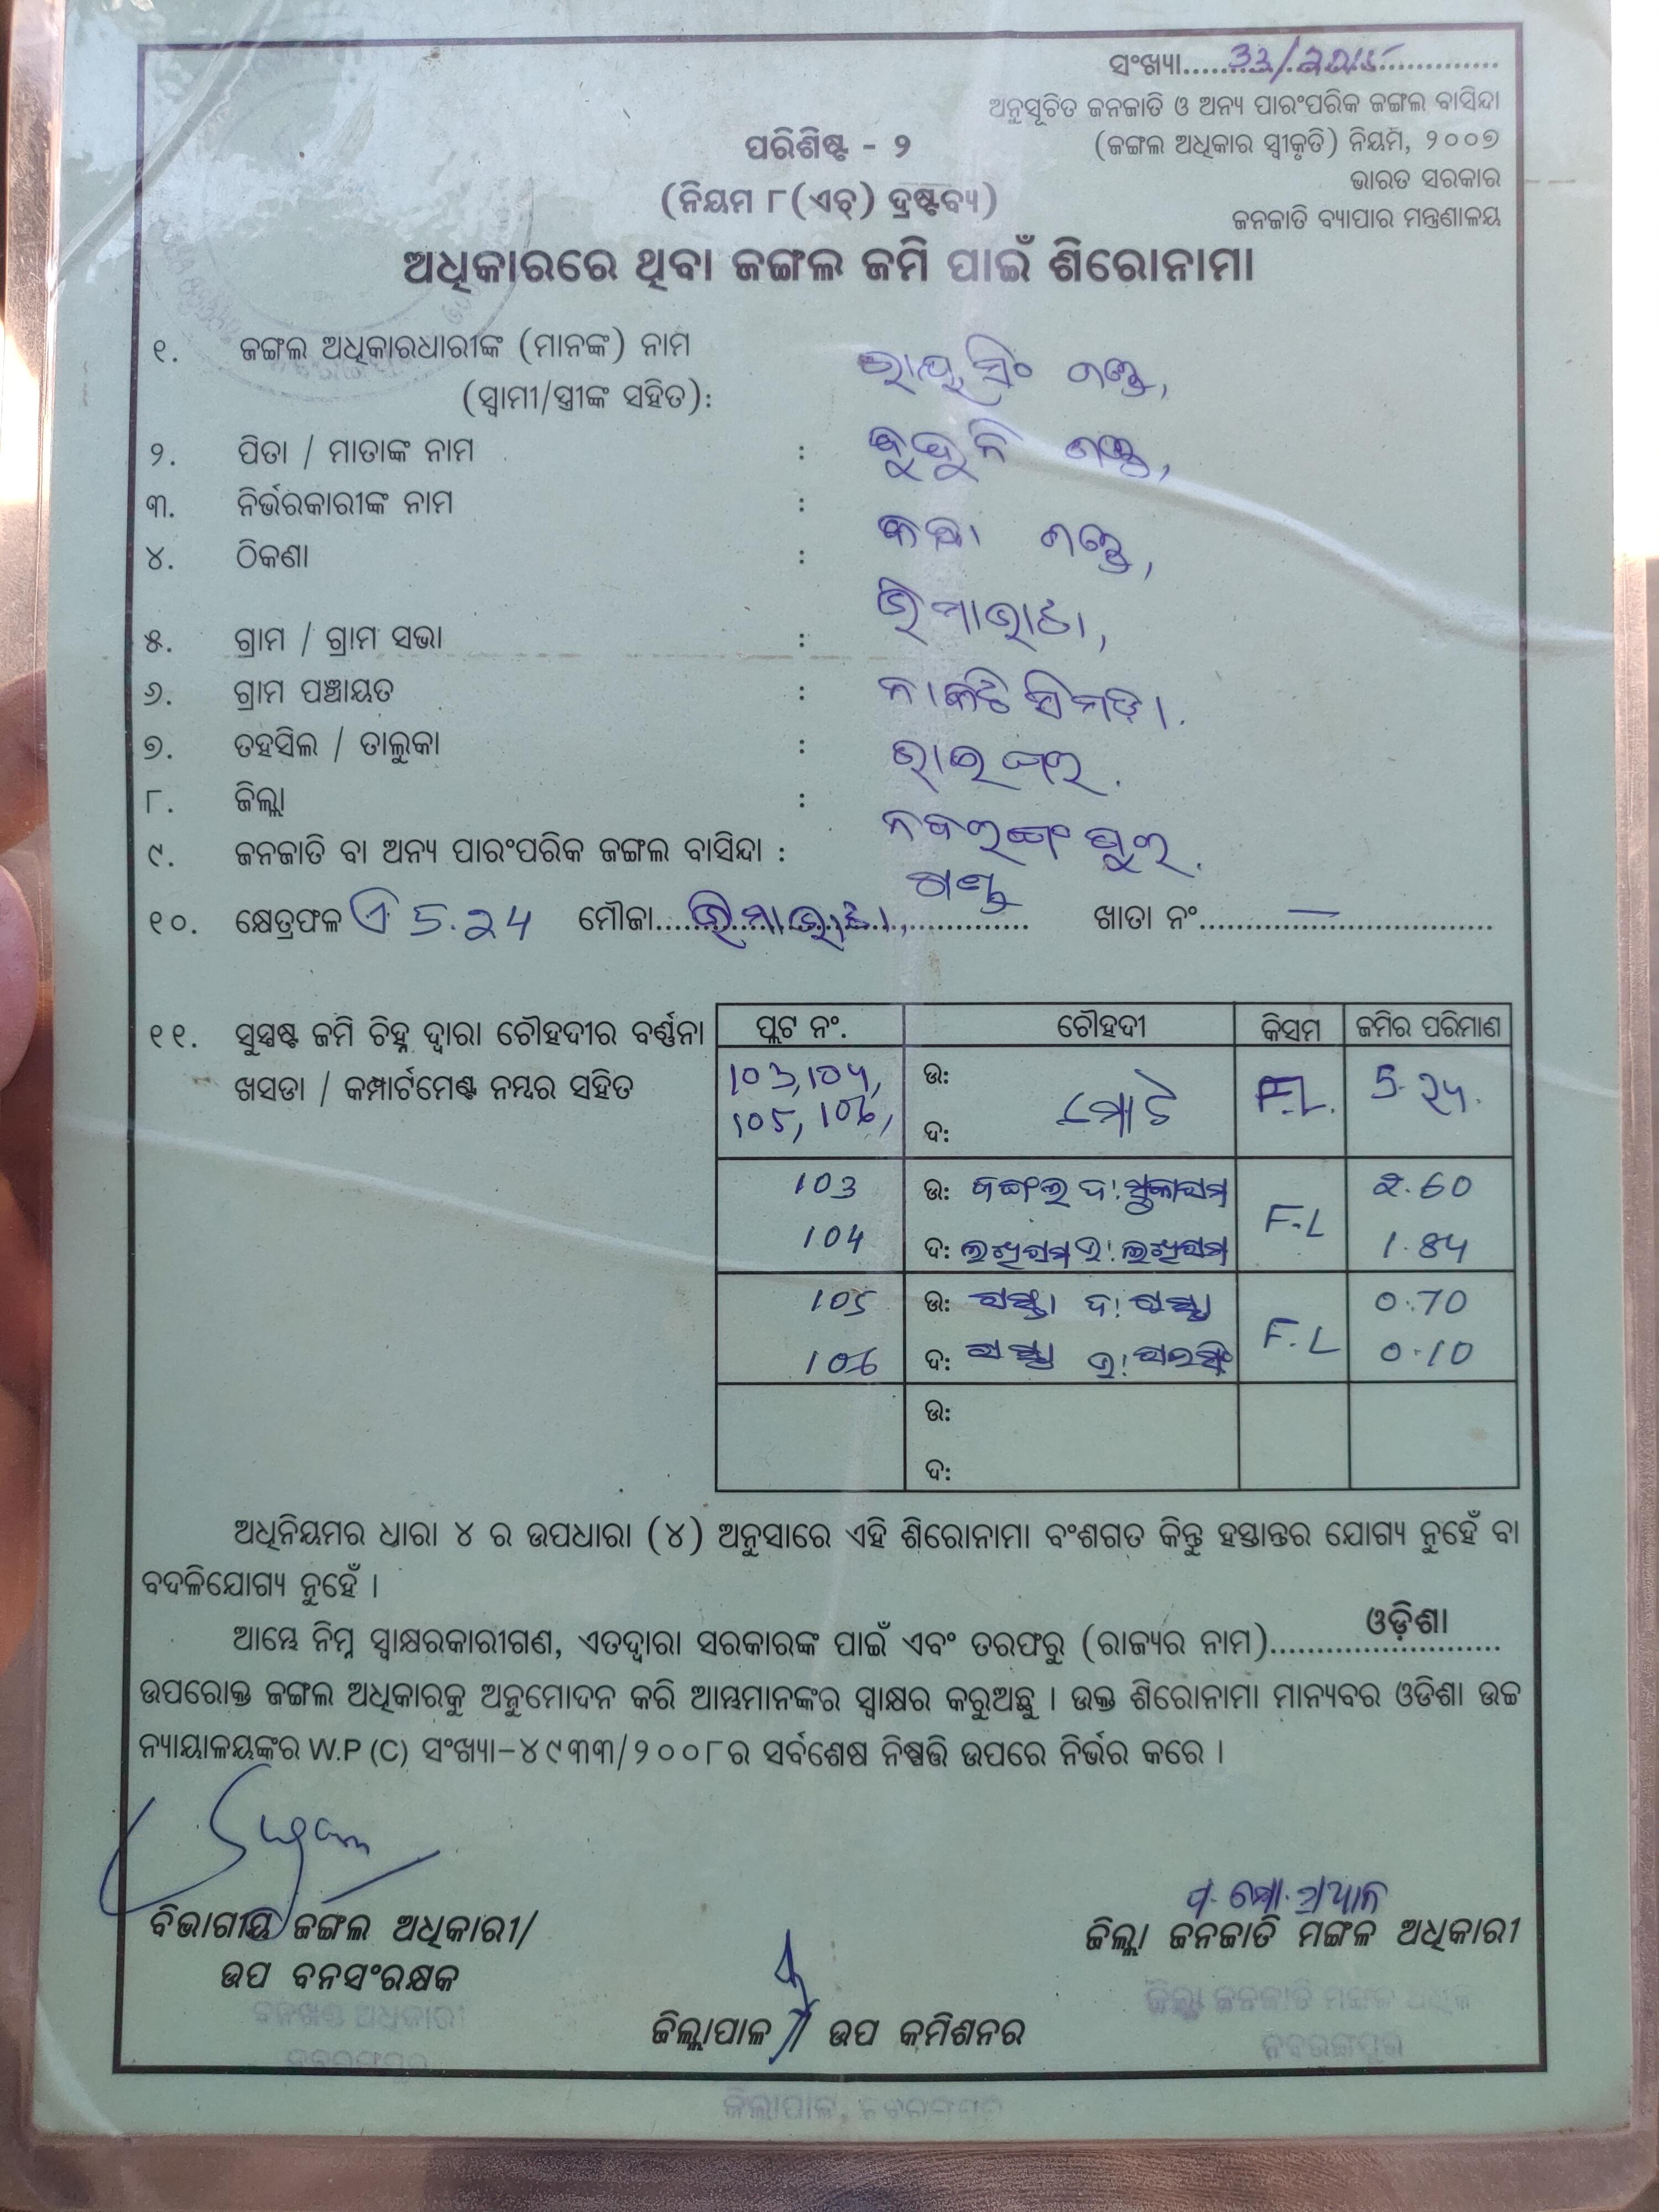 ସଂଖ୍ୟା..........33/2015..........
ଅନୁସୂଚିତ ଜନଜାତି ଓ ଅନ୍ୟ ପାରଂପରିକ ଜଙ୍ଗଲ ବାସିନ୍ଦା
(ଜଙ୍ଗଲ ଅଧିକାର ସ୍ୱୀକୃତି) ନିୟମ, ୨୦୦୭
ଭାରତ ସରକାର
ଜନଜାତି ବ୍ୟାପାର ମନ୍ତ୍ରଣାଳୟ
ପରିଶିଷ୍ଟ - ୨
(ନିୟମ ୮(ଏଚ୍) ଦ୍ରଷ୍ଟବ୍ୟ)
ଅଧିକାରରେ ଥିବା ଜଙ୍ଗଲ ଜମି ପାଇଁ ଶିରୋନାମା
୧. ଜଙ୍ଗଲ ଅଧିକାରଧାରୀଙ୍କ (ମାନଙ୍କ) ନାମ
(ସ୍ୱାମୀ/ସ୍ତ୍ରୀଙ୍କ ସହିତ):
୨. ପିତା / ମାତାଙ୍କ ନାମ :
୩. ନିର୍ଭରକାରୀଙ୍କ ନାମ :
୪. ଠିକଣା :
୫. ଗ୍ରାମ / ଗ୍ରାମ ସଭା :
୬. ଗ୍ରାମ ପଞ୍ଚାୟତ :
୭. ତହସିଲ / ତାଲୁକା : ରାଇଘର.
୮. ଜିଲ୍ଲା : ନବରଙ୍ଗପୁର.
୯. ଜନଜାତି ବା ଅନ୍ୟ ପାରଂପରିକ ଜଙ୍ଗଲ ବାସିନ୍ଦା : ଗଣ୍ଡ
୧୦. କ୍ଷେତ୍ରଫଳ ଏ 5.24 ମୌଜା.................... ଖାତା ନଂ..........—..........
୧୧. ସୁସ୍ପଷ୍ଟ ଜମି ଚିହ୍ନ ଦ୍ୱାରା ଚୌହଦୀର ବର୍ଣ୍ଣନା
ଖସଡା / କମ୍ପାର୍ଟମେଣ୍ଟ ନମ୍ବର ସହିତ
ପ୍ଲଟ ନଂ. ଚୌହଦୀ କିସମ ଜମିର ପରିମାଣ
103,104, ଉ: ମୋଟ F.L. 5.24.
105, 106, ଦ:
103 ଉ: ଜଙ୍ଗଲ ଦ: F.L 2.60
104 ଦ: 1.84
105 ଉ: ରାସ୍ତା ଦ: ରାସ୍ତା F.L 0.70
106 ଦ: ରାସ୍ତା 0.10
ଉ:
ଦ:
ଅଧିନିୟମର ଧାରା ୪ ର ଉପଧାରା (୪) ଅନୁସାରେ ଏହି ଶିରୋନାମା ବଂଶଗତ କିନ୍ତୁ ହସ୍ତାନ୍ତର ଯୋଗ୍ୟ ନୁହେଁ ବା
ବଦଳିଯୋଗ୍ୟ ନୁହେଁ ।
ଆମ୍ଭେ ନିମ୍ନ ସ୍ୱାକ୍ଷରକାରୀଗଣ, ଏତଦ୍ୱାରା ସରକାରଙ୍କ ପାଇଁ ଏବଂ ତରଫରୁ (ରାଜ୍ୟର ନାମ)..........ଓଡ଼ିଶା..........
ଉପରୋକ୍ତ ଜଙ୍ଗଲ ଅଧିକାରକୁ ଅନୁମୋଦନ କରି ଆମ୍ଭମାନଙ୍କର ସ୍ୱାକ୍ଷର କରୁଅଛୁ । ଉକ୍ତ ଶିରୋନାମା ମାନ୍ୟବର ଓଡିଶା ଉଚ୍ଚ
ନ୍ୟାୟାଳୟଙ୍କର W.P (C) ସଂଖ୍ୟା-୪୯୩୩/୨୦୦୮ର ସର୍ବଶେଷ ନିଷ୍ପତ୍ତି ଉପରେ ନିର୍ଭର କରେ ।
ବିଭାଗୀୟ ଜଙ୍ଗଲ ଅଧିକାରୀ/
ଉପ ବନସଂରକ୍ଷକ
ଜିଲ୍ଲା ଜନଜାତି ମଙ୍ଗଳ ଅଧିକାରୀ
ଜିଲ୍ଲା ଜନଜାତି ମଙ୍ଗଳ
ନବରଙ୍ଗପୁର
ବନଖଣ୍ଡ ଅଧିକାରୀ
ନବରଙ୍ଗପୁର
ଜିଲ୍ଲାପାଳ / ଉପ କମିଶନର
ଜିଲ୍ଲାପାଳ, ନବରଙ୍ଗପୁର